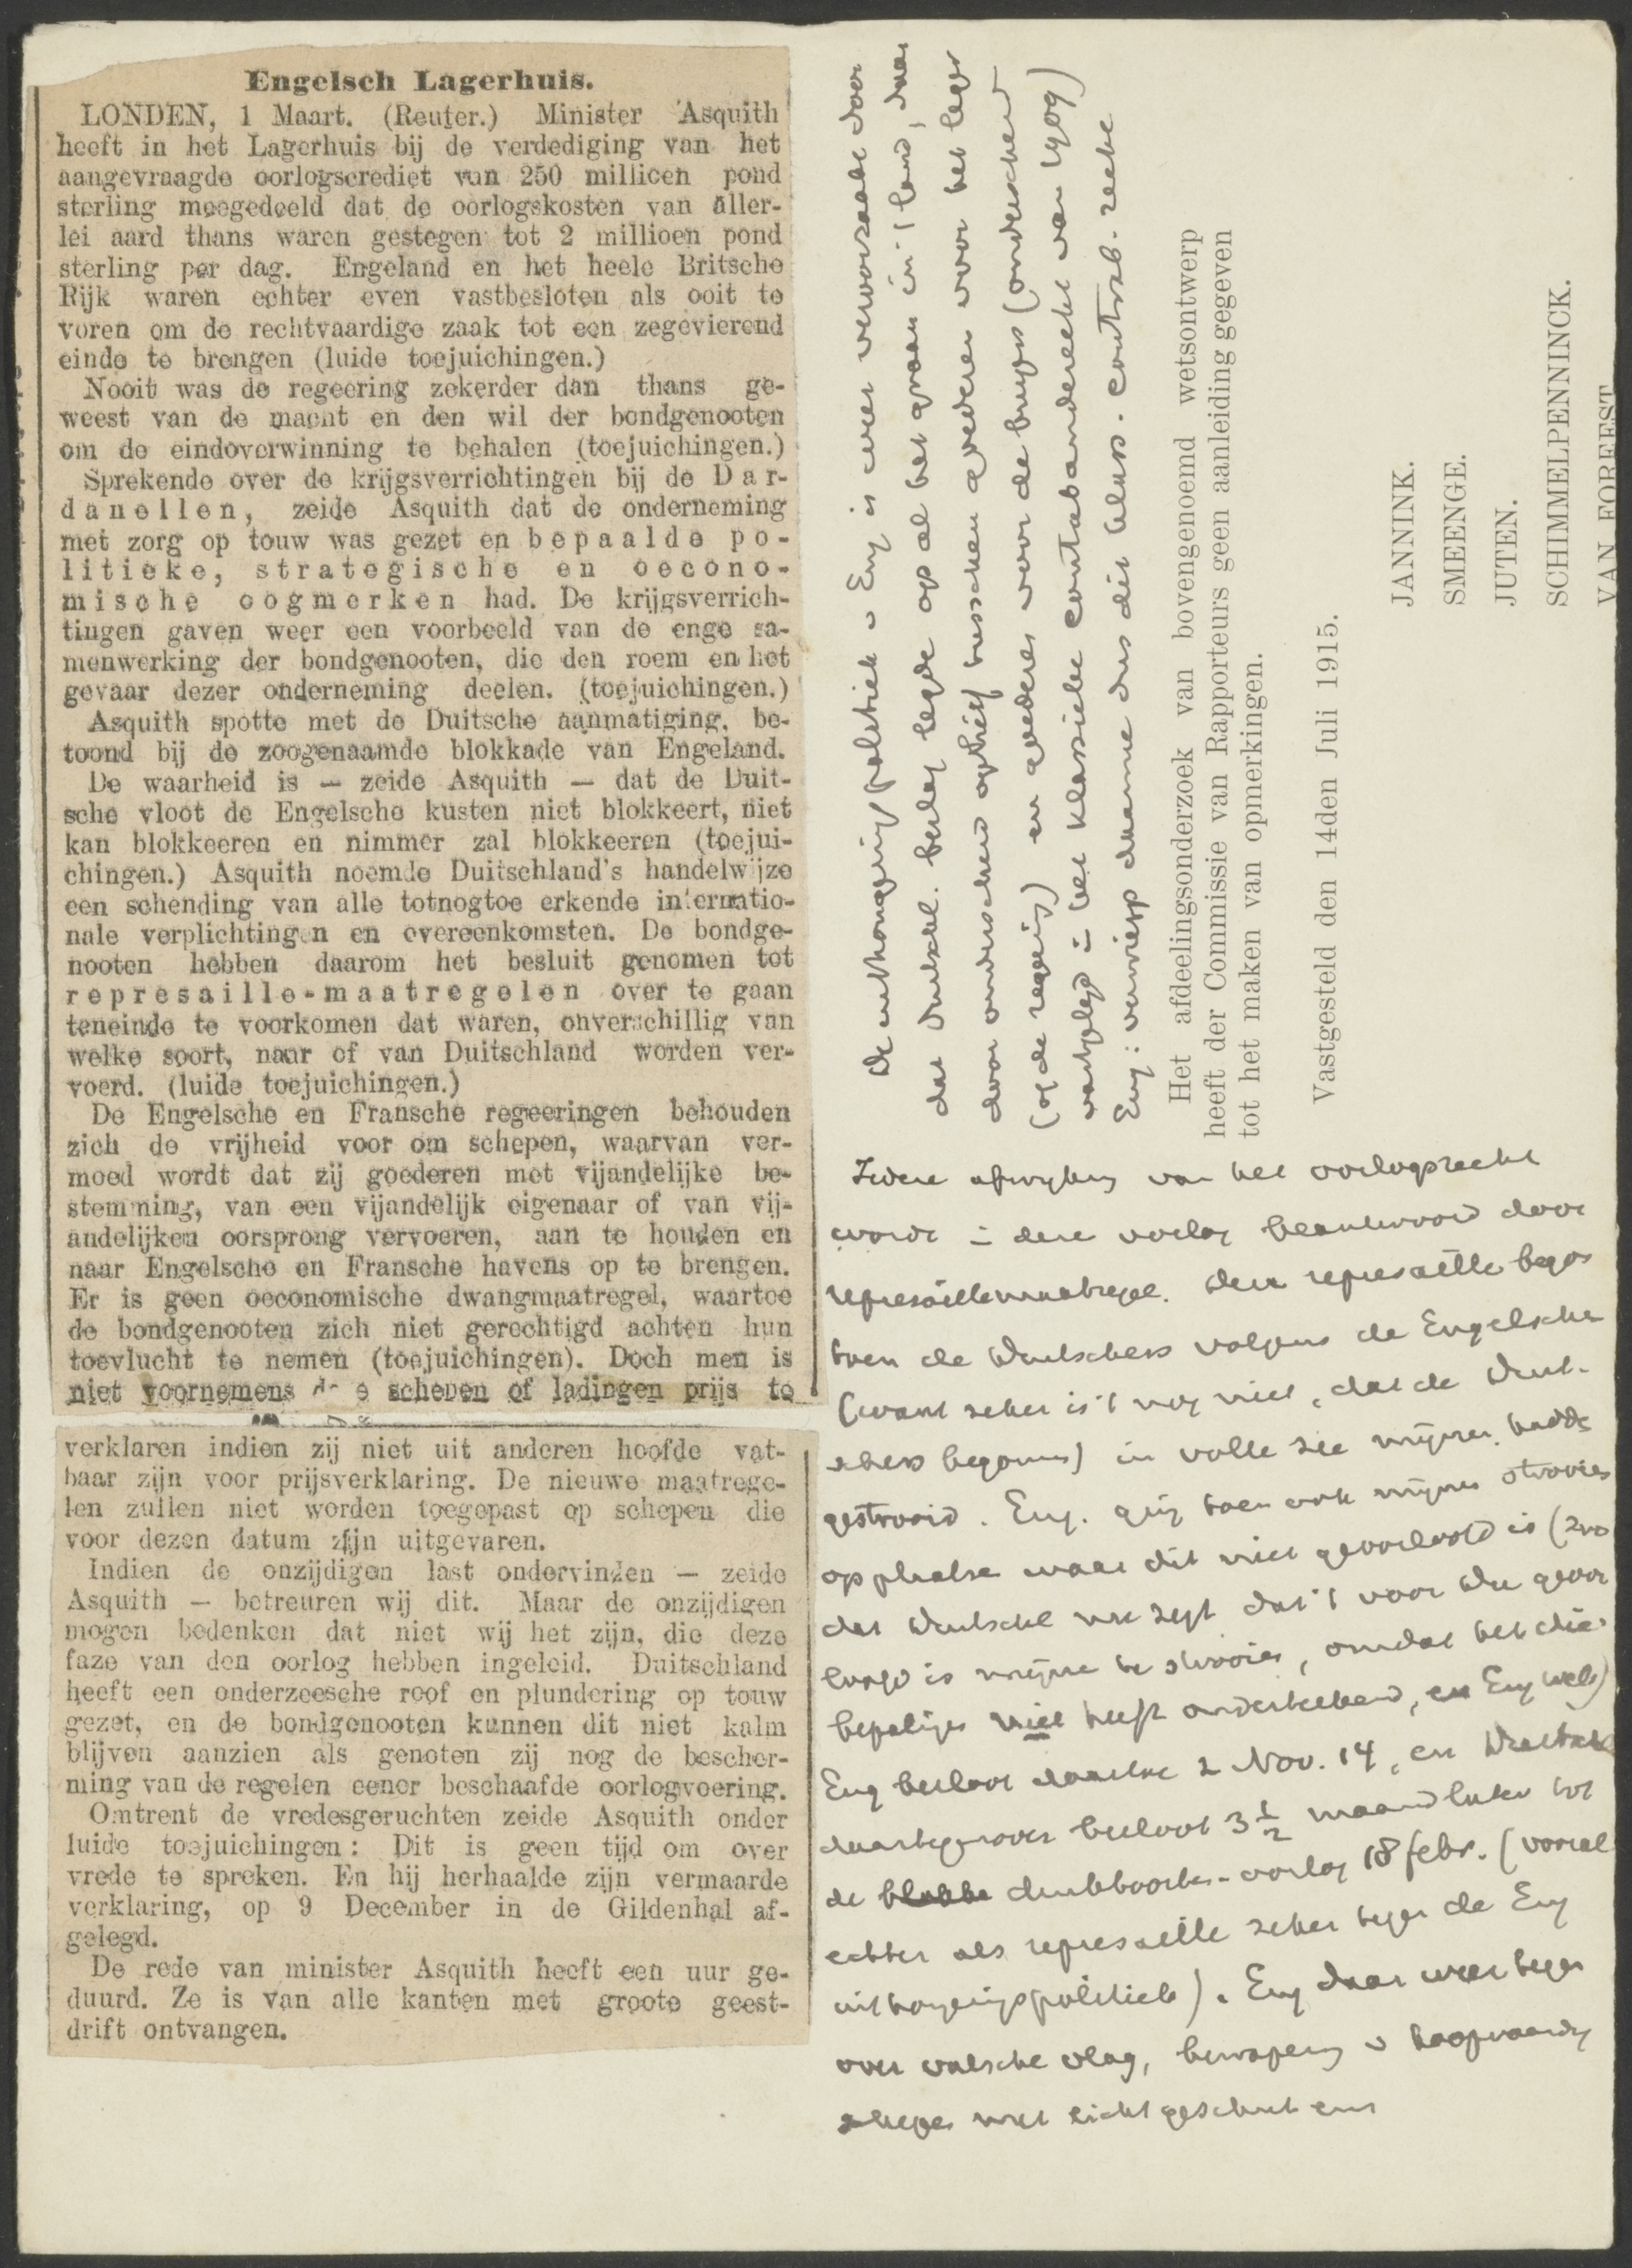 Engelsch Lagerhuis.
LONDEN, 1 Maart. (Reuter.) Minister Asquith
heeft in het Lagerhuis bij de verdediging van het
aangevraagde oorlogscrediet van 250 millioen pond
sterling meegedeeld dat de oorlogskosten van aller-
lei aard thans waren gestegen tot 2 millioen pond
sterling per dag. Engeland en het heele Britsche
Rijk waren echter even vastbesloten als ooit te
voren om de rechtvaardige zaak tot een zegevierend
einde te brengen (luide toejuichingen.)
Nooit was de regeering zekerder dan thans ge-
weest van de macht en den wil der bondgenooten
om de eindoverwinning te behalen (toejuichingen.)
Sprekende over de krijgsverrichtingen bij de Dar-
danellen, zeide Asquith dat de onderneming
met zorg op touw was gezet en bepaalde po-
litieke, strategische en oecono-
mische oogmerken had. De krijgsverrich-
tingen gaven weer een voorbeeld van de enge sa-
menwerking der bondgenooten, die den roem en het
gevaar dezer onderneming deelen. (toejuichingen.)
Asquith spotte met de Duitsche aanmatiging, be-
toond bij de zoogenaamde blokkade van Engeland.
De waarheid is — zeide Asquith — dat de Duit-
sche vloot de Engelsche kusten niet blokkeert, niet
kan blokkeeren en nimmer zal blokkeeren (toejui-
chingen.) Asquith noemde Duitschland's handelwijze
een schending van alle totnogtoe erkende internatio-
nale verplichtingen en overeenkomsten. De bondge-
nooten hebben daarom het besluit genomen tot
represaille-maatregelen over te gaan
teneinde te voorkomen dat waren, onverschillig van
welke soort, naar of van Duitschland worden ver-
voerd. (luide toejuichingen.)
De Engelsche en Fransche regeeringen behouden
zich de vrijheid voor om schepen, waarvan ver-
moed wordt dat zij goederen met vijandelijke be-
stemming, van een vijandelijk eigenaar of van vij-
andelijken oorsprong vervoeren, aan te houden en
naar Engelsche en Fransche havens op te brengen.
Er is geen oeconomische dwangmaatregel, waartoe
de bondgenooten zich niet gerechtigd achten hun
toevlucht te nemen (toejuichingen). Doch men is
niet voornemens schepen of ladingen prijs te
verklaren indien zij niet uit anderen hoofde vat-
baar zijn voor prijsverklaring. De nieuwe maatrege-
len zullen niet worden toegepast op schepen die
voor dezen datum zijn uitgevaren.
Indien de onzijdigen last ondervinden — zeide
Asquith — betreuren wij dit. Maar de onzijdigen
mogen bedenken dat niet wij het zijn, die deze
faze van den oorlog hebben ingeleid. Duitschland
heeft een onderzeesche roof en plundering op touw
gezet, en de bondgenooten kunnen dit niet kalm
blijven aanzien als genoten zij nog de bescher-
ming van de regelen eener beschaafde oorlogvoering.
Omtrent de vredesgeruchten zeide Asquith onder
luide toejuichingen: Dit is geen tijd om over
vrede te spreken. En hij herhaalde zijn vermaarde
verklaring, op 9 December in de Gildenhal af-
gelegd.
De rede van minister Asquith heeft een uur ge-
duurd. Ze is van alle kanten met groote geest-
drift ontvangen.
De uithongeringspolitiek v Eng is weer veroorzaakt door
dat Duitschl. beslag legde op al het graan in 't land, daar
door onderscheid ophief tusschen goederen voor het leger
(of de regeering) en goederen voor de burgers (onderscheid
vastgelegd in het klassieke contrabanderecht van 1909)
Eng: verwierp daarme dus dit contrab. recht
Het afdeelingsonderzoek van bovengenoemd wetsontwerp
heeft der Commissie van Rapporteurs geen aanleiding gegeven
tot het maken van opmerkingen.
Vastgesteld den 14den Juli 1915.
JANNINK.
SMEENGE.
JUTEN.
SCHIMMELPENNINCK.
VAN FOREEST
Iedere afwijking van het oorlogsrecht
wordt in deze oorlog beantwoord door
represaillemaatregel. Deze represaille begon
toen de Duitschers volgens de Engelsche
(want zeker is 't nog niet, dat de Duit-
schers begonnen) in volle zee mijnen hadde
gestrooid. Eng. ging toen ook mijnen strooien
op plaatse waar dit niet geoorloofd is (zoo
dat Duitschl nu zegt dat 't voor Du geoor
loofd is mijne te strooien, omdat het die
bepalige niet heeft onderteekend, en Eng wel)
Eng besloot daartoe 2 Nov. 14, en Duitschl
daartegenover besloot 3½ maand later tot
de duikboots-oorlog 18 febr. (vooral
echter als represaille zeker tegen de Eng
uithongeringspolitiek). Eng daar weer tegen
over valsche vlag, bewapening v koopvaardij
schepen met licht geschut enz